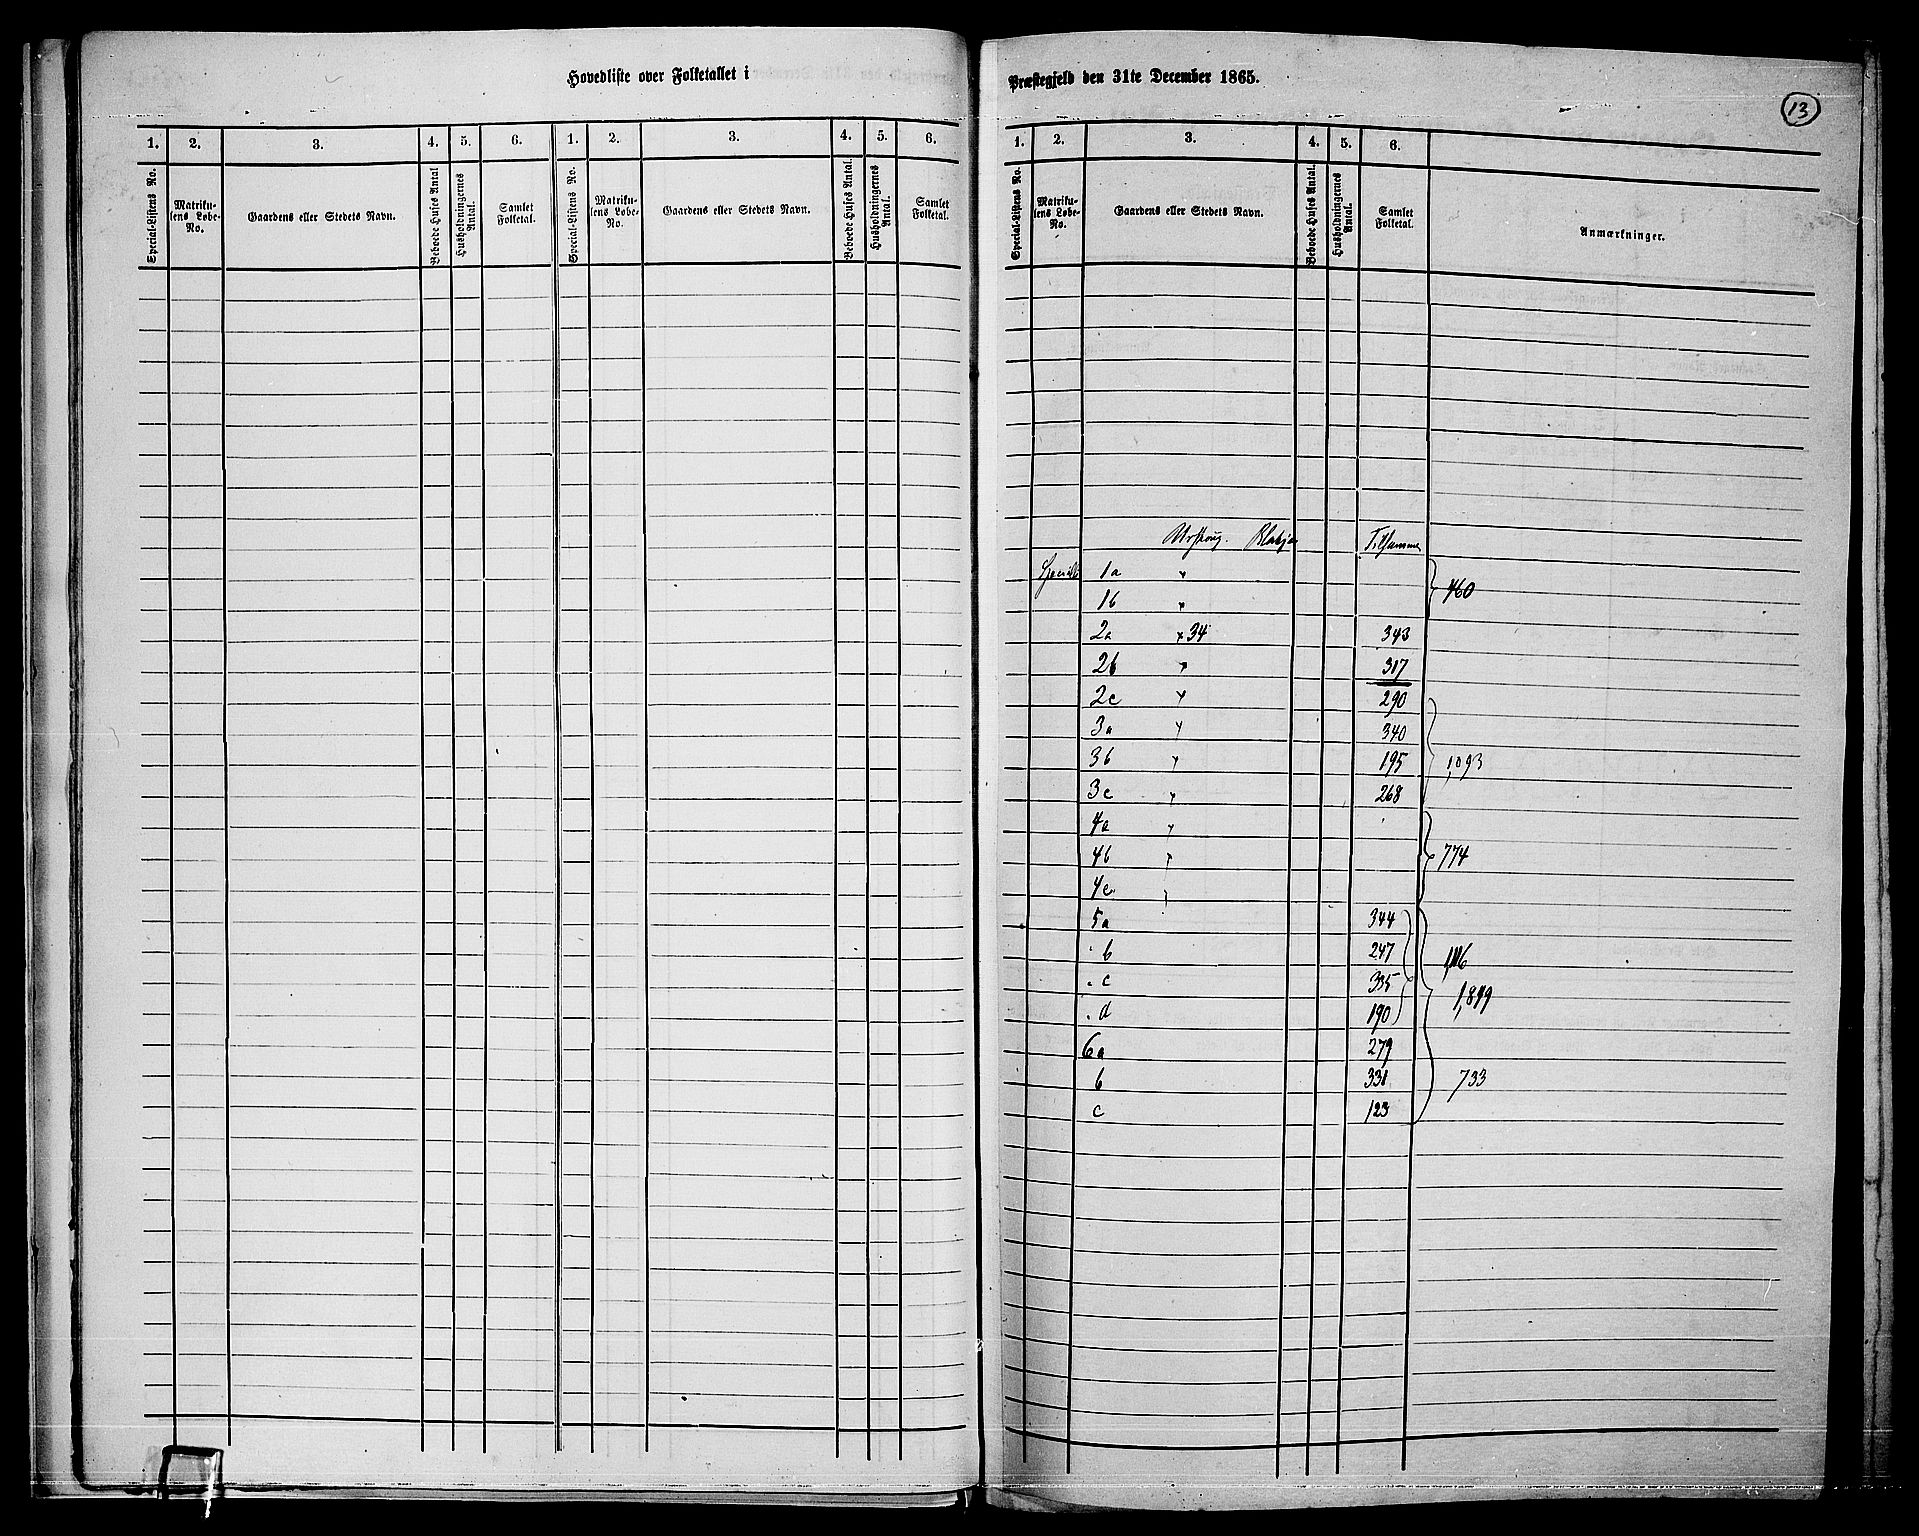 Hovedliste over Folketallet i
1. 2. 3. 4. 5. 6. 1. 2. 3. 4. 5. 6.
Special-Listens No. Matrikulens Løbe-No. Gaardens eller Stedets Navn. Beboede Huses Antal. Husholdningernes Antal. Samlet Folketal. Special-Listens No. Matrikulens Løbe-No. Gaardens eller Stedets Navn. Beboede Huses Antal. Husholdningernes Antal. Samlet Folketal.
Præstegjeld den 31te December 1865.
13
1. 2. 3. 4. 5. 6.
Special-Listens No. Matrikulens Løbe-No. Gaardens eller Stedets Navn. Beboede Huses Antal. Husholdningernes Antal. Samlet Folketal. Anmærkninger.
Tilsammen
1a " 460
1b "
2a " 34 343
2b " 317
2c " 290
3a " 340
3b " 195 1,093
3c " 268
4a "
4b " 774
4c "
5a 344
" b 247 1,116
" c 335
" d 190 1,849
6a 279
b 331 733
c 123